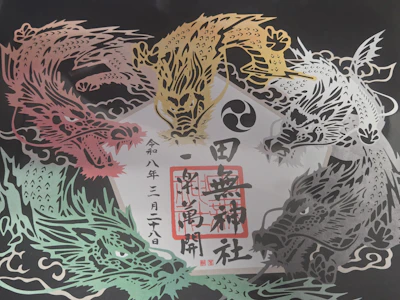 田無神社
一粒萬開
令和八年三月二十八日